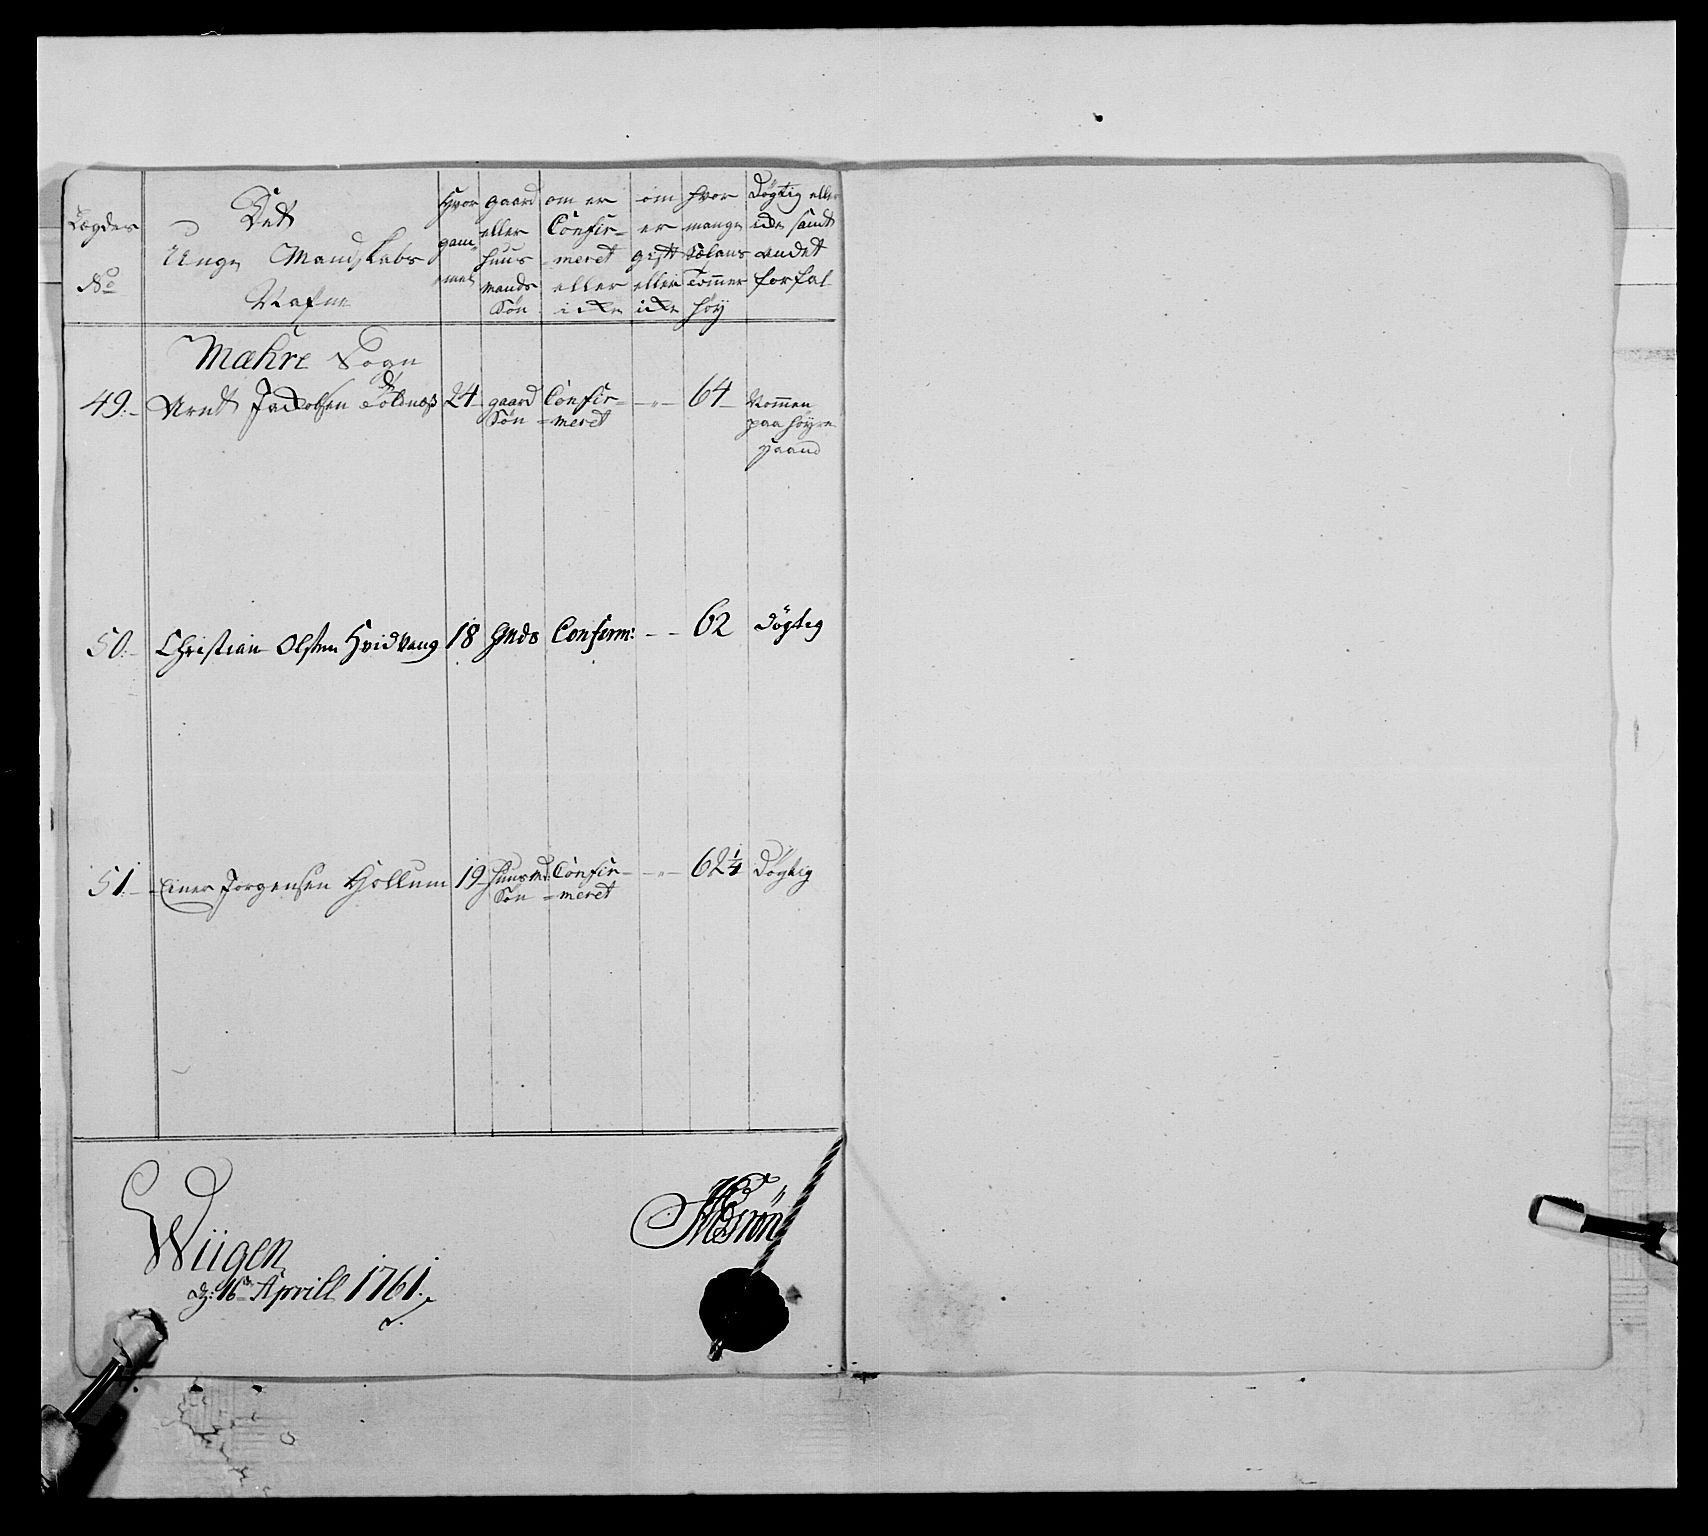 Lægdes No
Det Unge Mandskabs Nafne
Hvor gam= mel
gaard eller huus mands Søn
om er Confir= meret eller icke
om er gift eller icke
hvor mange Sælans Tommer høy
Døgtig eller icke samt andet forfal
Mæhre Sogn
49. Arndt Jackobsen 24 gaard Søn Confir= =meret - " - 64 Kommen paa høyre Haand
50. Christian Olsen Hvidvang 18 Hmds Confirm: - - 62 Døgteg
51. Einer Jorgensen Hollum 19 huusmd: Søn Confir= =meret - " - 62 1/4 Døgtig
Wiigen
d: 16de Aprill 1761.